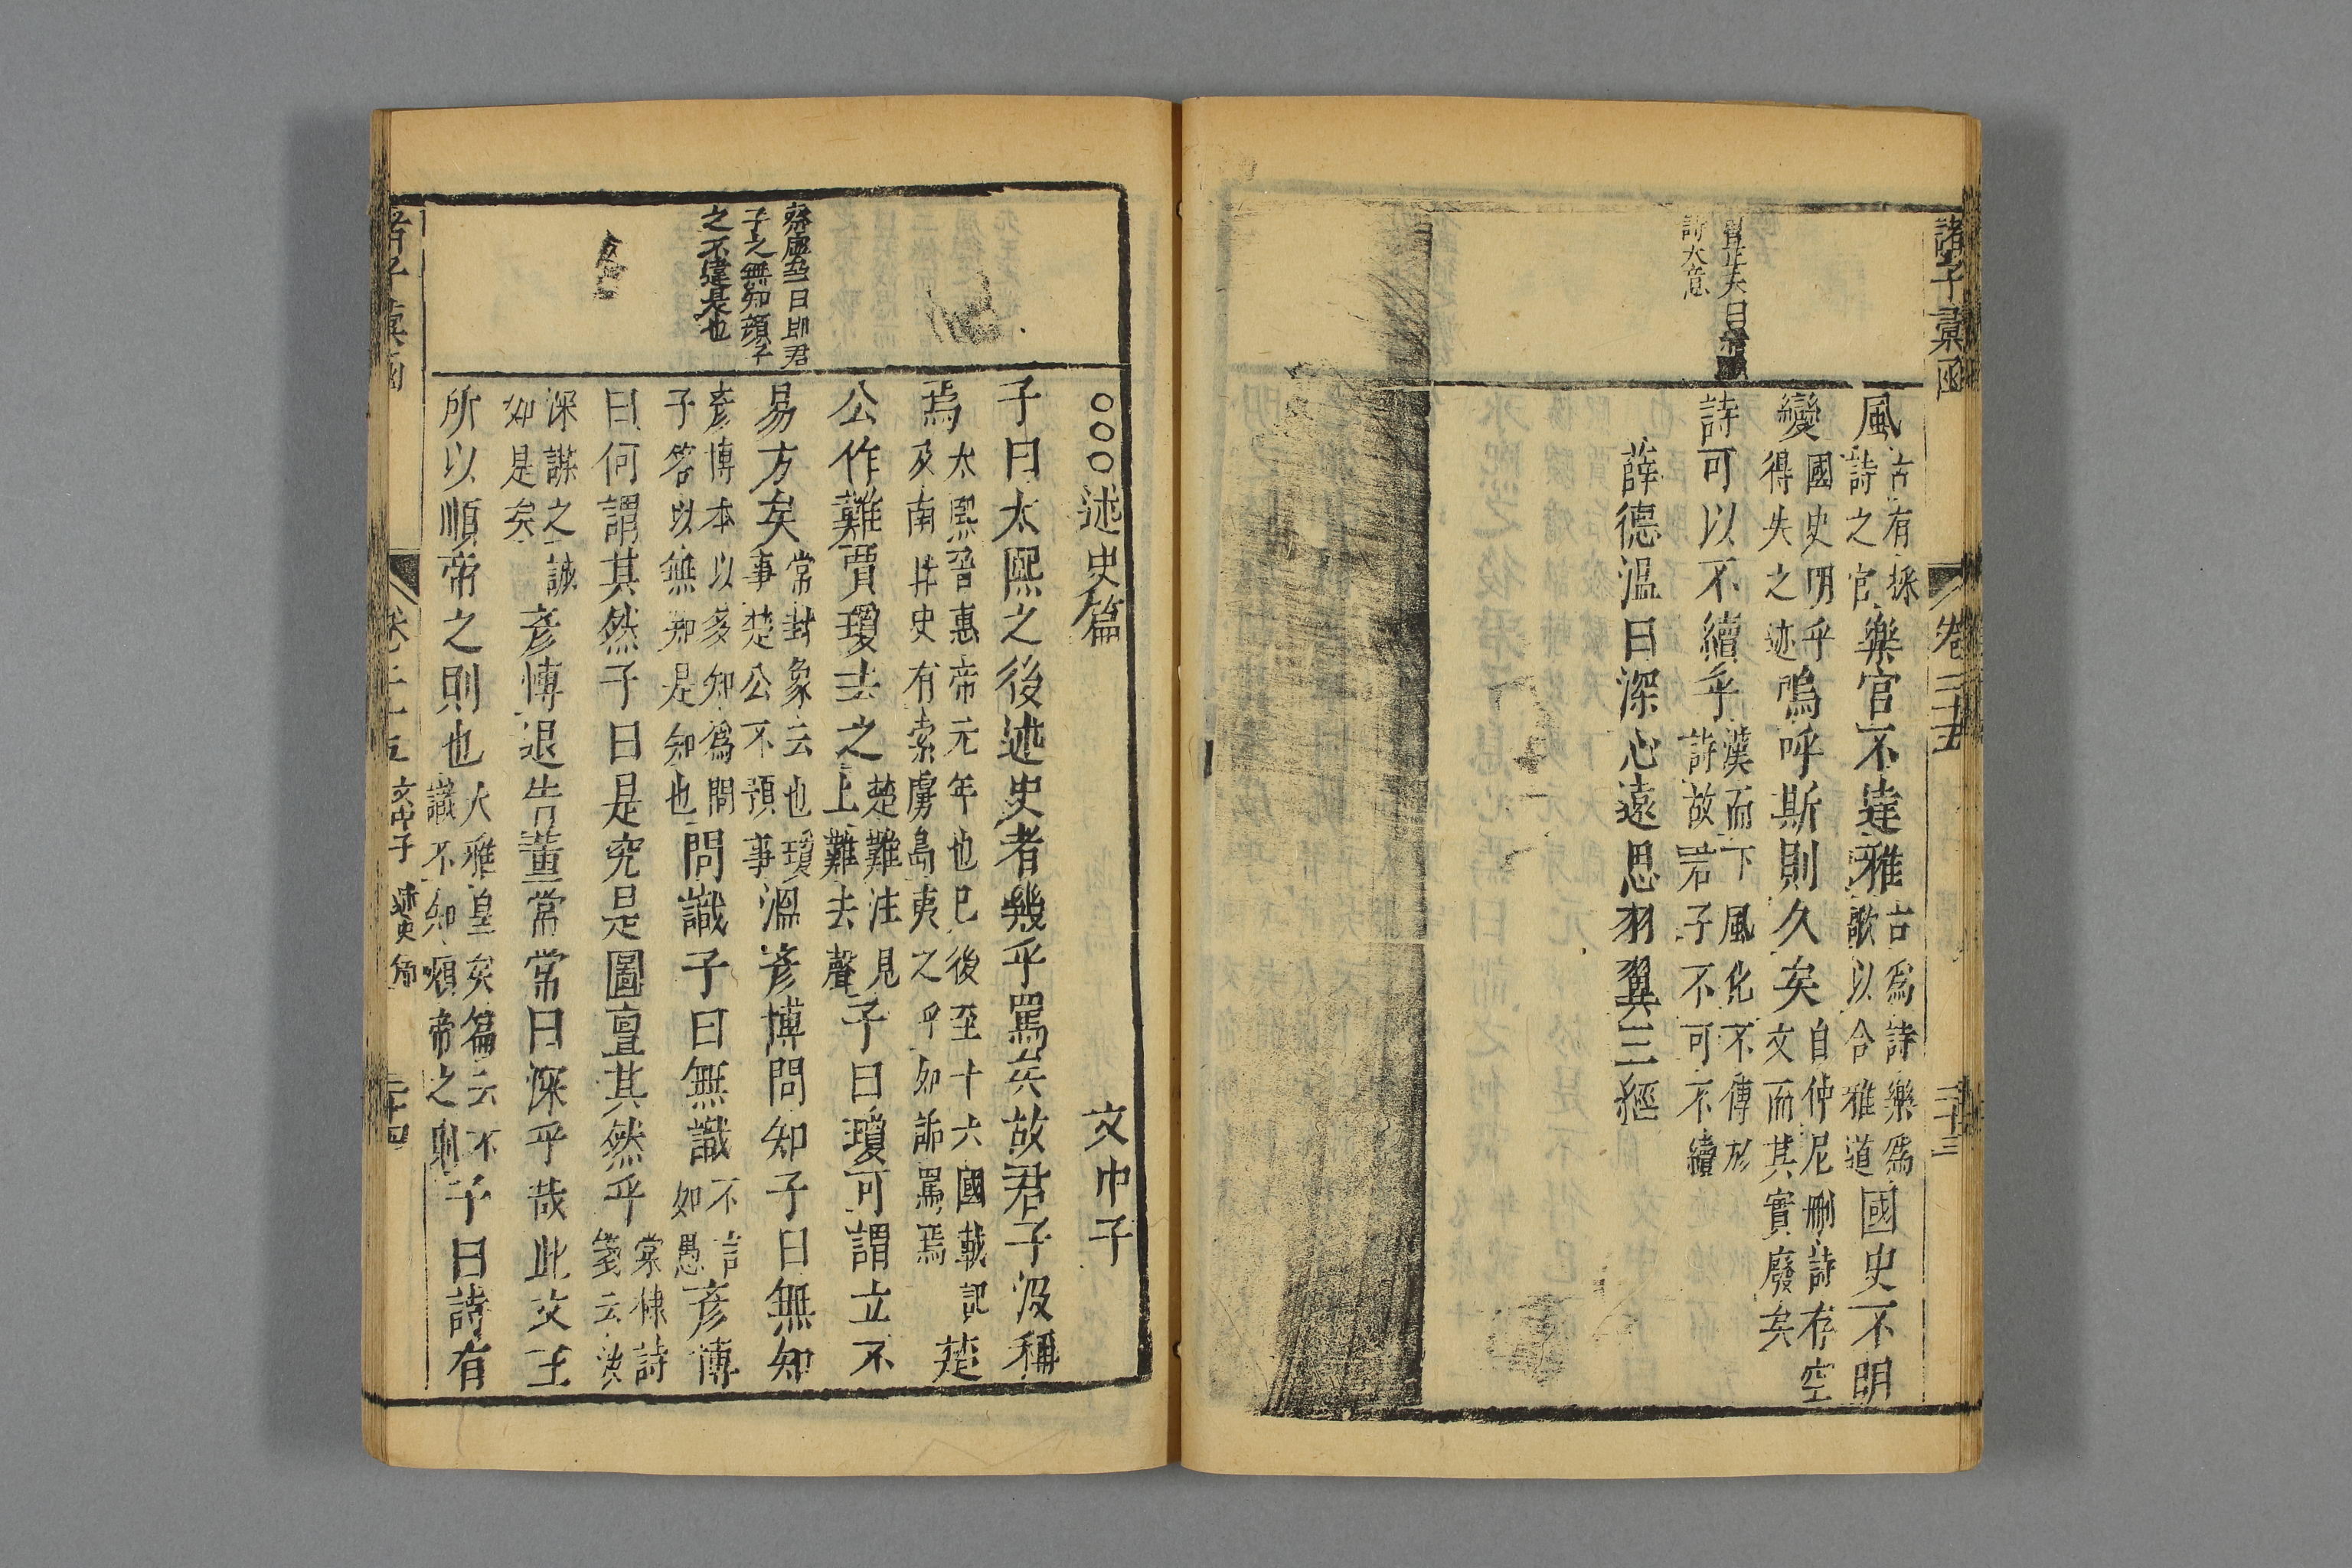 諸子彙函
卷二十五
三十三
曰續
詩大意
風古有採詩之官樂官不達雅古爲詩樂爲歌以合雅道國史不明
變國史明乎得失之迹嗚呼斯則久矣自仲尼刪詩存空文而其實廢矣
詩可以不續乎漢而下風化不傳於詩故君子不可不續
薛德溫曰深心遠思羽翼三經
蔡虛齋曰即君
子之無知顔子
之不違是也
○○○述史篇 文中子
子曰太熙之後述史者幾乎罵矣故君子沒稱
焉太熙晉惠帝元年也已後至十六國載記及南北史有索虜島夷之乎如詬罵焉楚
公作難賈瓊去之楚難難注見上難去聲子曰瓊可謂立不
易方矣常封象云也瓊事楚公不預事溫彥博問知子曰無知
彥博本以多知爲問子答以無知是知也問識子曰無識不言如愚彥博
曰何謂其然子曰是究是圖亶其然乎棠棣詩箋云汝
深謀之誠如是矣彥博退告董常常曰深乎哉此文王
所以順帝之則也大雅皇矣篇云不識不知順帝之則子曰詩有
諸子彙函
卷二十五
文中子
述史篇
三十四